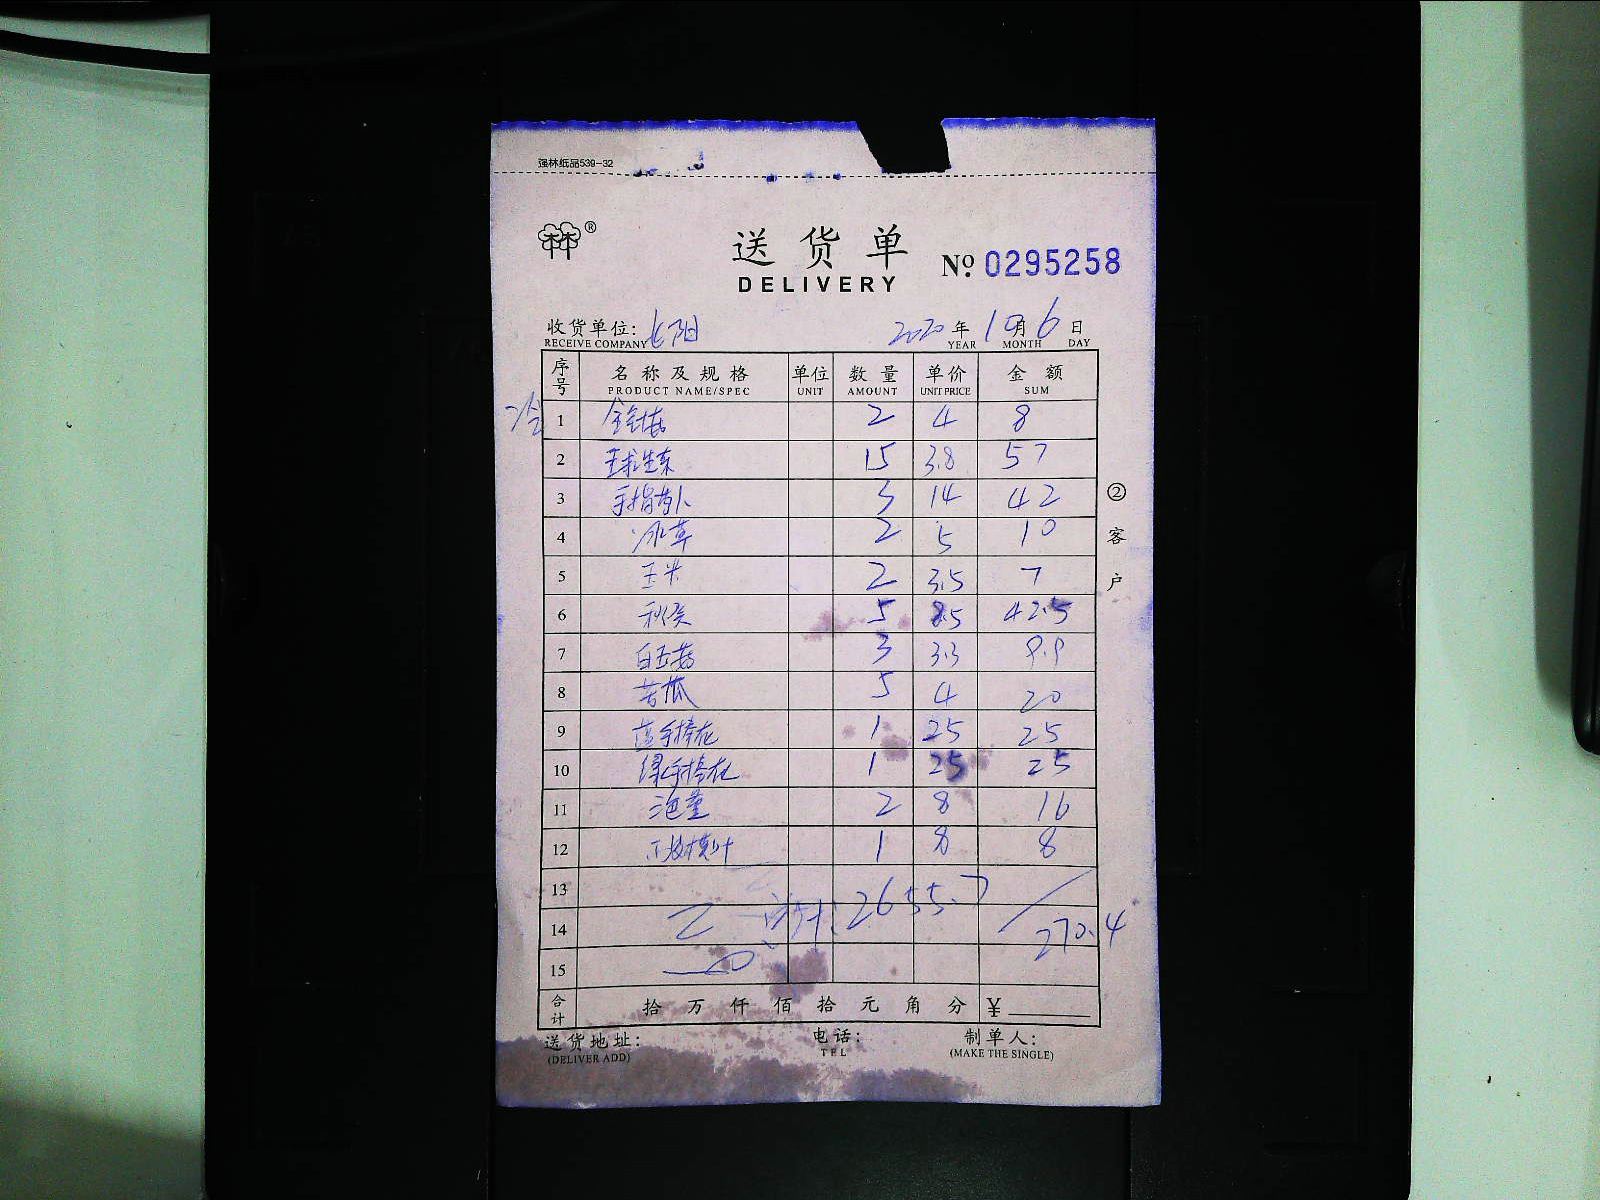 强林纸品539-32
林林®
送货单
DELIVERY
№ 0295258
收货单位: 2020 年 10 月 6 日
RECEIVE COMPANY YEAR MONTH DAY
序号 名称及规格 单位 数量 单价 金额
PRODUCT NAME/SPEC UNIT AMOUNT UNIT PRICE SUM
冷 1 金针菇 2 4 8
2 球生菜 15 3.8 57
3 手指萝卜 3 14 42
4 冰草 2 5 10
5 玉米 2 3.5 7
6 秋葵 5 8.5 42.5
7 白玉菇 3 3.3 9.9
8 苦瓜 5 4 20
9 1 25 25
10 1 25 25
11 2 8 16
12 1 8 8
13 2655.7
14 270.4
15
合计 拾 万 仟 佰 拾 元 角 分 ¥
送货地址: 电话: 制单人:
(DELIVER ADD) TEL (MAKE THE SINGLE)
② 客户